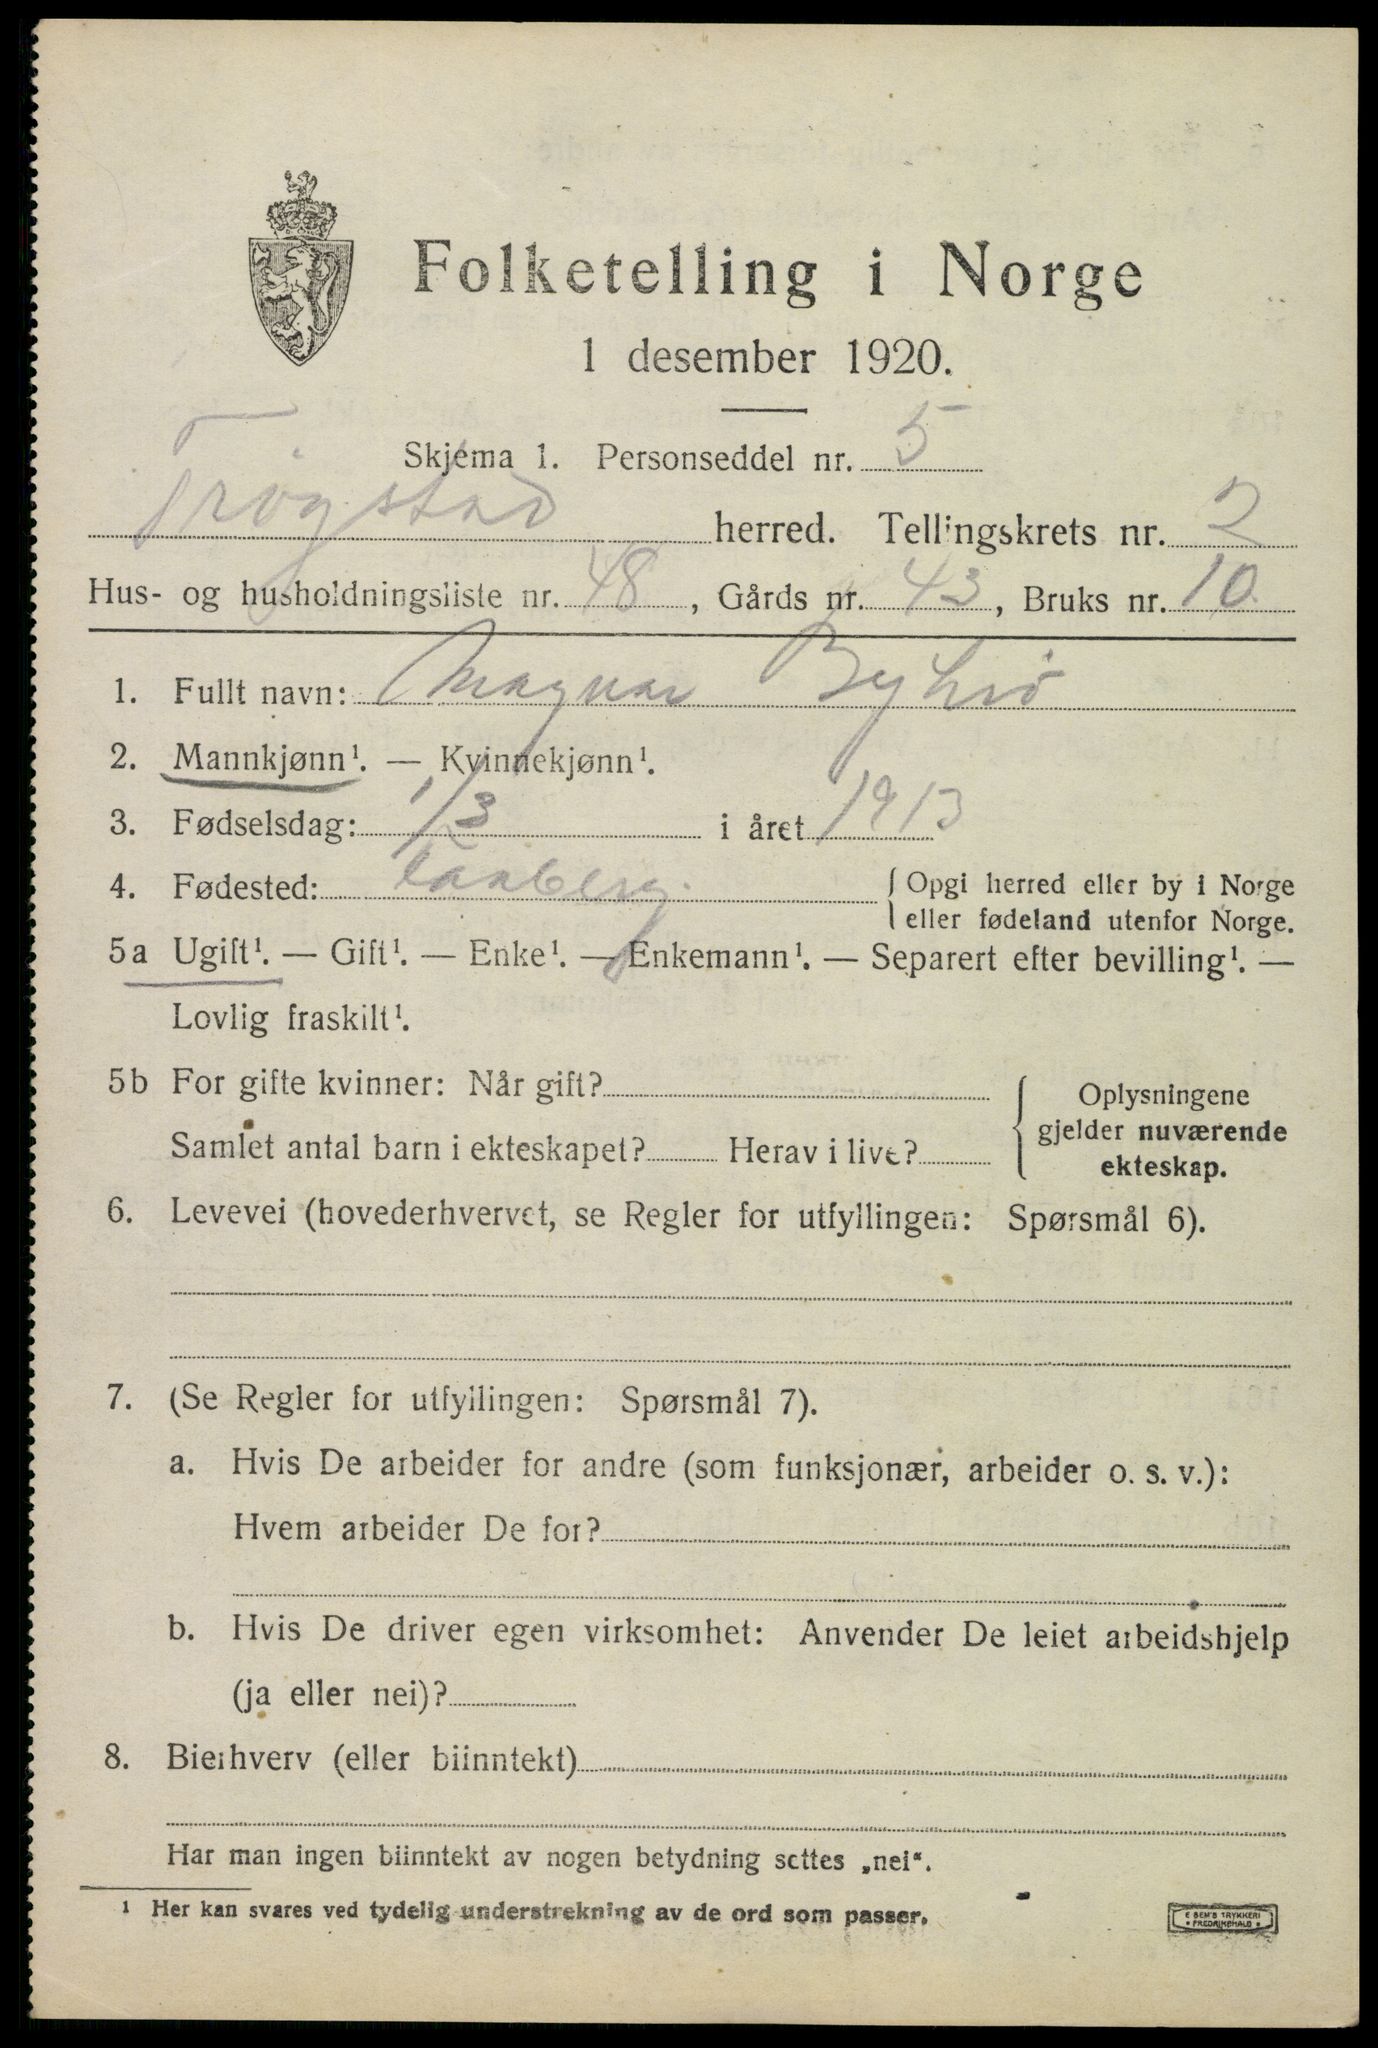 Folketelling i Norge
1 desember 1920.
Skjema 1. Personseddel nr. 5
Trøgstad herred. Tellingskrets nr. 2
Hus- og husholdningsliste nr. 48, Gårds nr. 43, Bruks nr. 10
1. Fullt navn: Magnar
2. Mannkjønn¹. — Kvinnekjønn¹.
3. Fødselsdag: 1/3 i året 1913
4. Fødested: Faaberg. Opgi herred eller by i Norge
eller fødeland utenfor Norge.
5a Ugift¹. — Gift¹. — Enke¹. — Enkemann¹. — Separert efter bevilling¹. —
Lovlig fraskilt¹.
5b For gifte kvinner: Når gift?
Samlet antal barn i ekteskapet? Herav i live?
Oplysningene
gjelder nuværende
ekteskap.
6. Levevei (hovederhvervet, se Regler for utfyllingen: Spørsmål 6).
7. (Se Regler for utfyllingen: Spørsmål 7).
a. Hvis De arbeider for andre (som funksjonær, arbeider o. s. v.):
Hvem arbeider De for?
b. Hvis De driver egen virksomhet: Anvender De leiet arbeidshjelp
(ja eller nei)?
8. Bierhverv (eller biinntekt)
Har man ingen biinntekt av nogen betydning settes „nei“.
¹ Her kan svares ved tydelig understrekning av de ord som passer.
E SEM'S TRYKKERI
• FREDRIKSHALD •